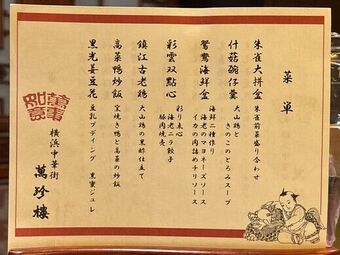 菜単
朱雀大拼盆
朱雀前菜盛り合わせ
什菇碗仔羹
大山鶏と
きのこのとろみスープ
鴛鴦海鮮盒
海鮮二種作り
海老のマヨネーズソース
イカの肉詰めチリソース
彩雲双點心
彩り点心
海老ニラ餃子
豚肉焼売
鎮江古老鶏
大山鶏の黒酢仕立て
高菜鴨炒飯
窯焼き鴨と高菜の炒飯
黒光姜豆花
豆乳プディング 黒蜜ジュレ
萬事如意
横浜中華街
萬珍樓